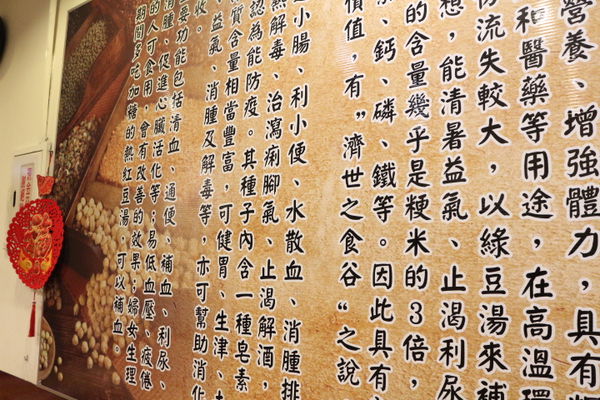 營養、增強體力,具有
和醫藥等用途,在高溫環
流失較大,以綠豆湯來補
想,能清暑益氣、止渴利尿
的含量幾乎是粳米的3倍,
、鈣、磷、鐵等。因此具有
價值,有"濟世之食谷"之說
小腸、利小便、水散血、消腫排
熱解毒、治瀉痢腳氣、止渴解酒,
認為能防疫。其種子內含一種皂素
質含量相當豐富,可健胃、生津、
益氣、消腫及解毒等,亦可幫助消化
收。
要功能包括清血、通便、補血、利尿、
消腫、促進心臟活化等;易低血壓、疲倦
的人可食用,會有改善的效果;婦女生理
期間多吃加糖的熱紅豆湯,可以補血。